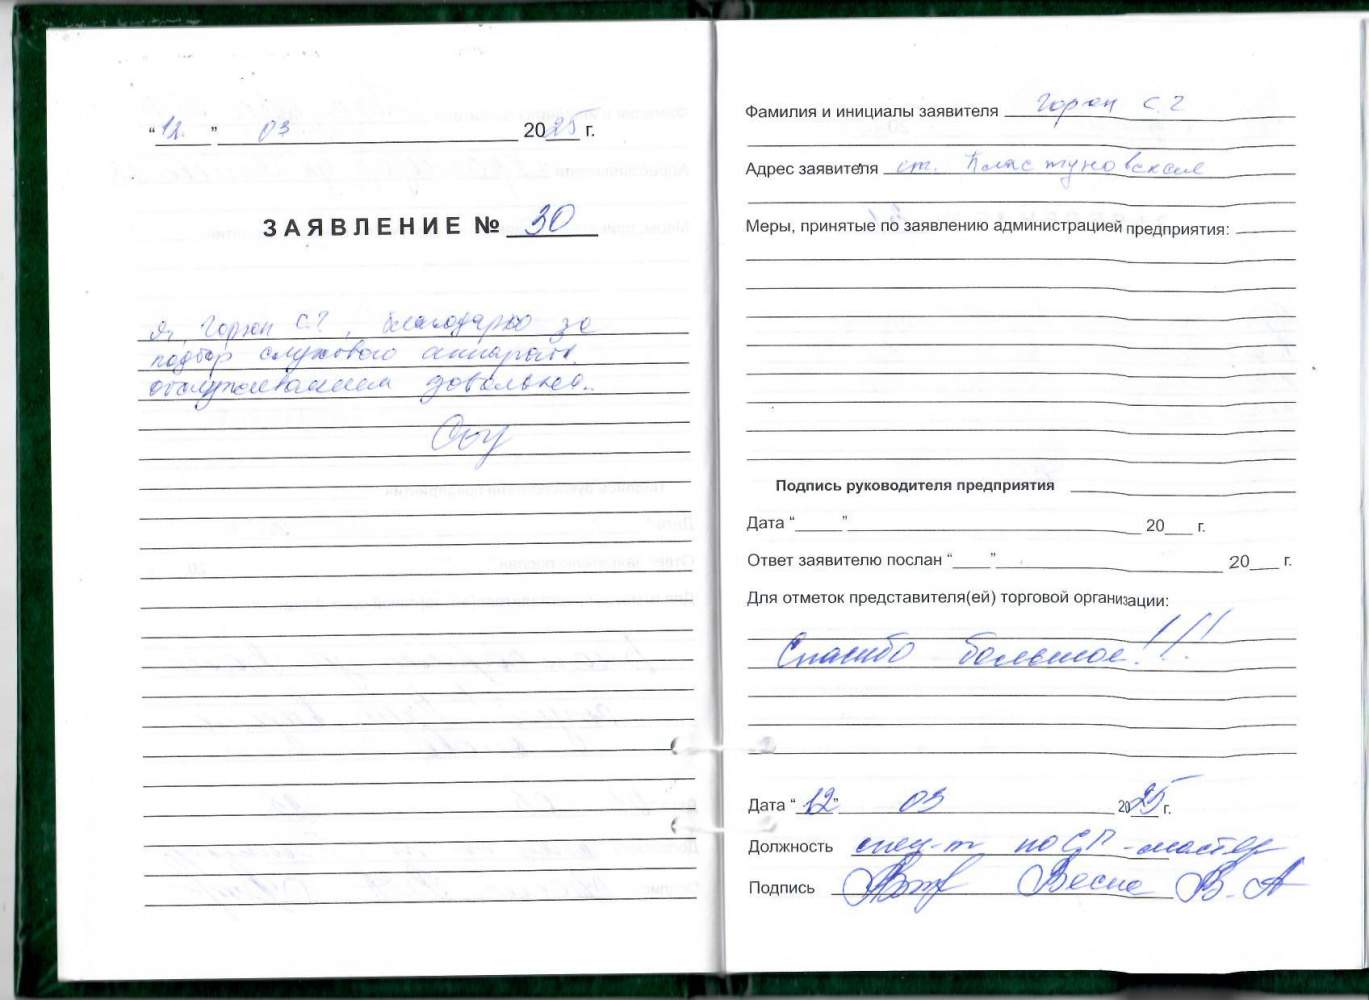 “12.” 03 2025 г.
ЗАЯВЛЕНИЕ № 30
Я, Горюн С.Г, благодарю за
подбор слухового аппарата.
обслуживанием довольна..
Фамилия и инициалы заявителя Горюн С.Г
Адрес заявителя ст. Пластуновская
Меры, принятые по заявлению администрацией предприятия:
Подпись руководителя предприятия
Дата “ ” 20 г.
Ответ заявителю послан “ ” 20 г.
Для отметок представителя(ей) торговой организации:
Спасибо большое!!!
Дата “12” 03 2025 г.
Должность спец-т по СП -мастер
Подпись Весна В.А